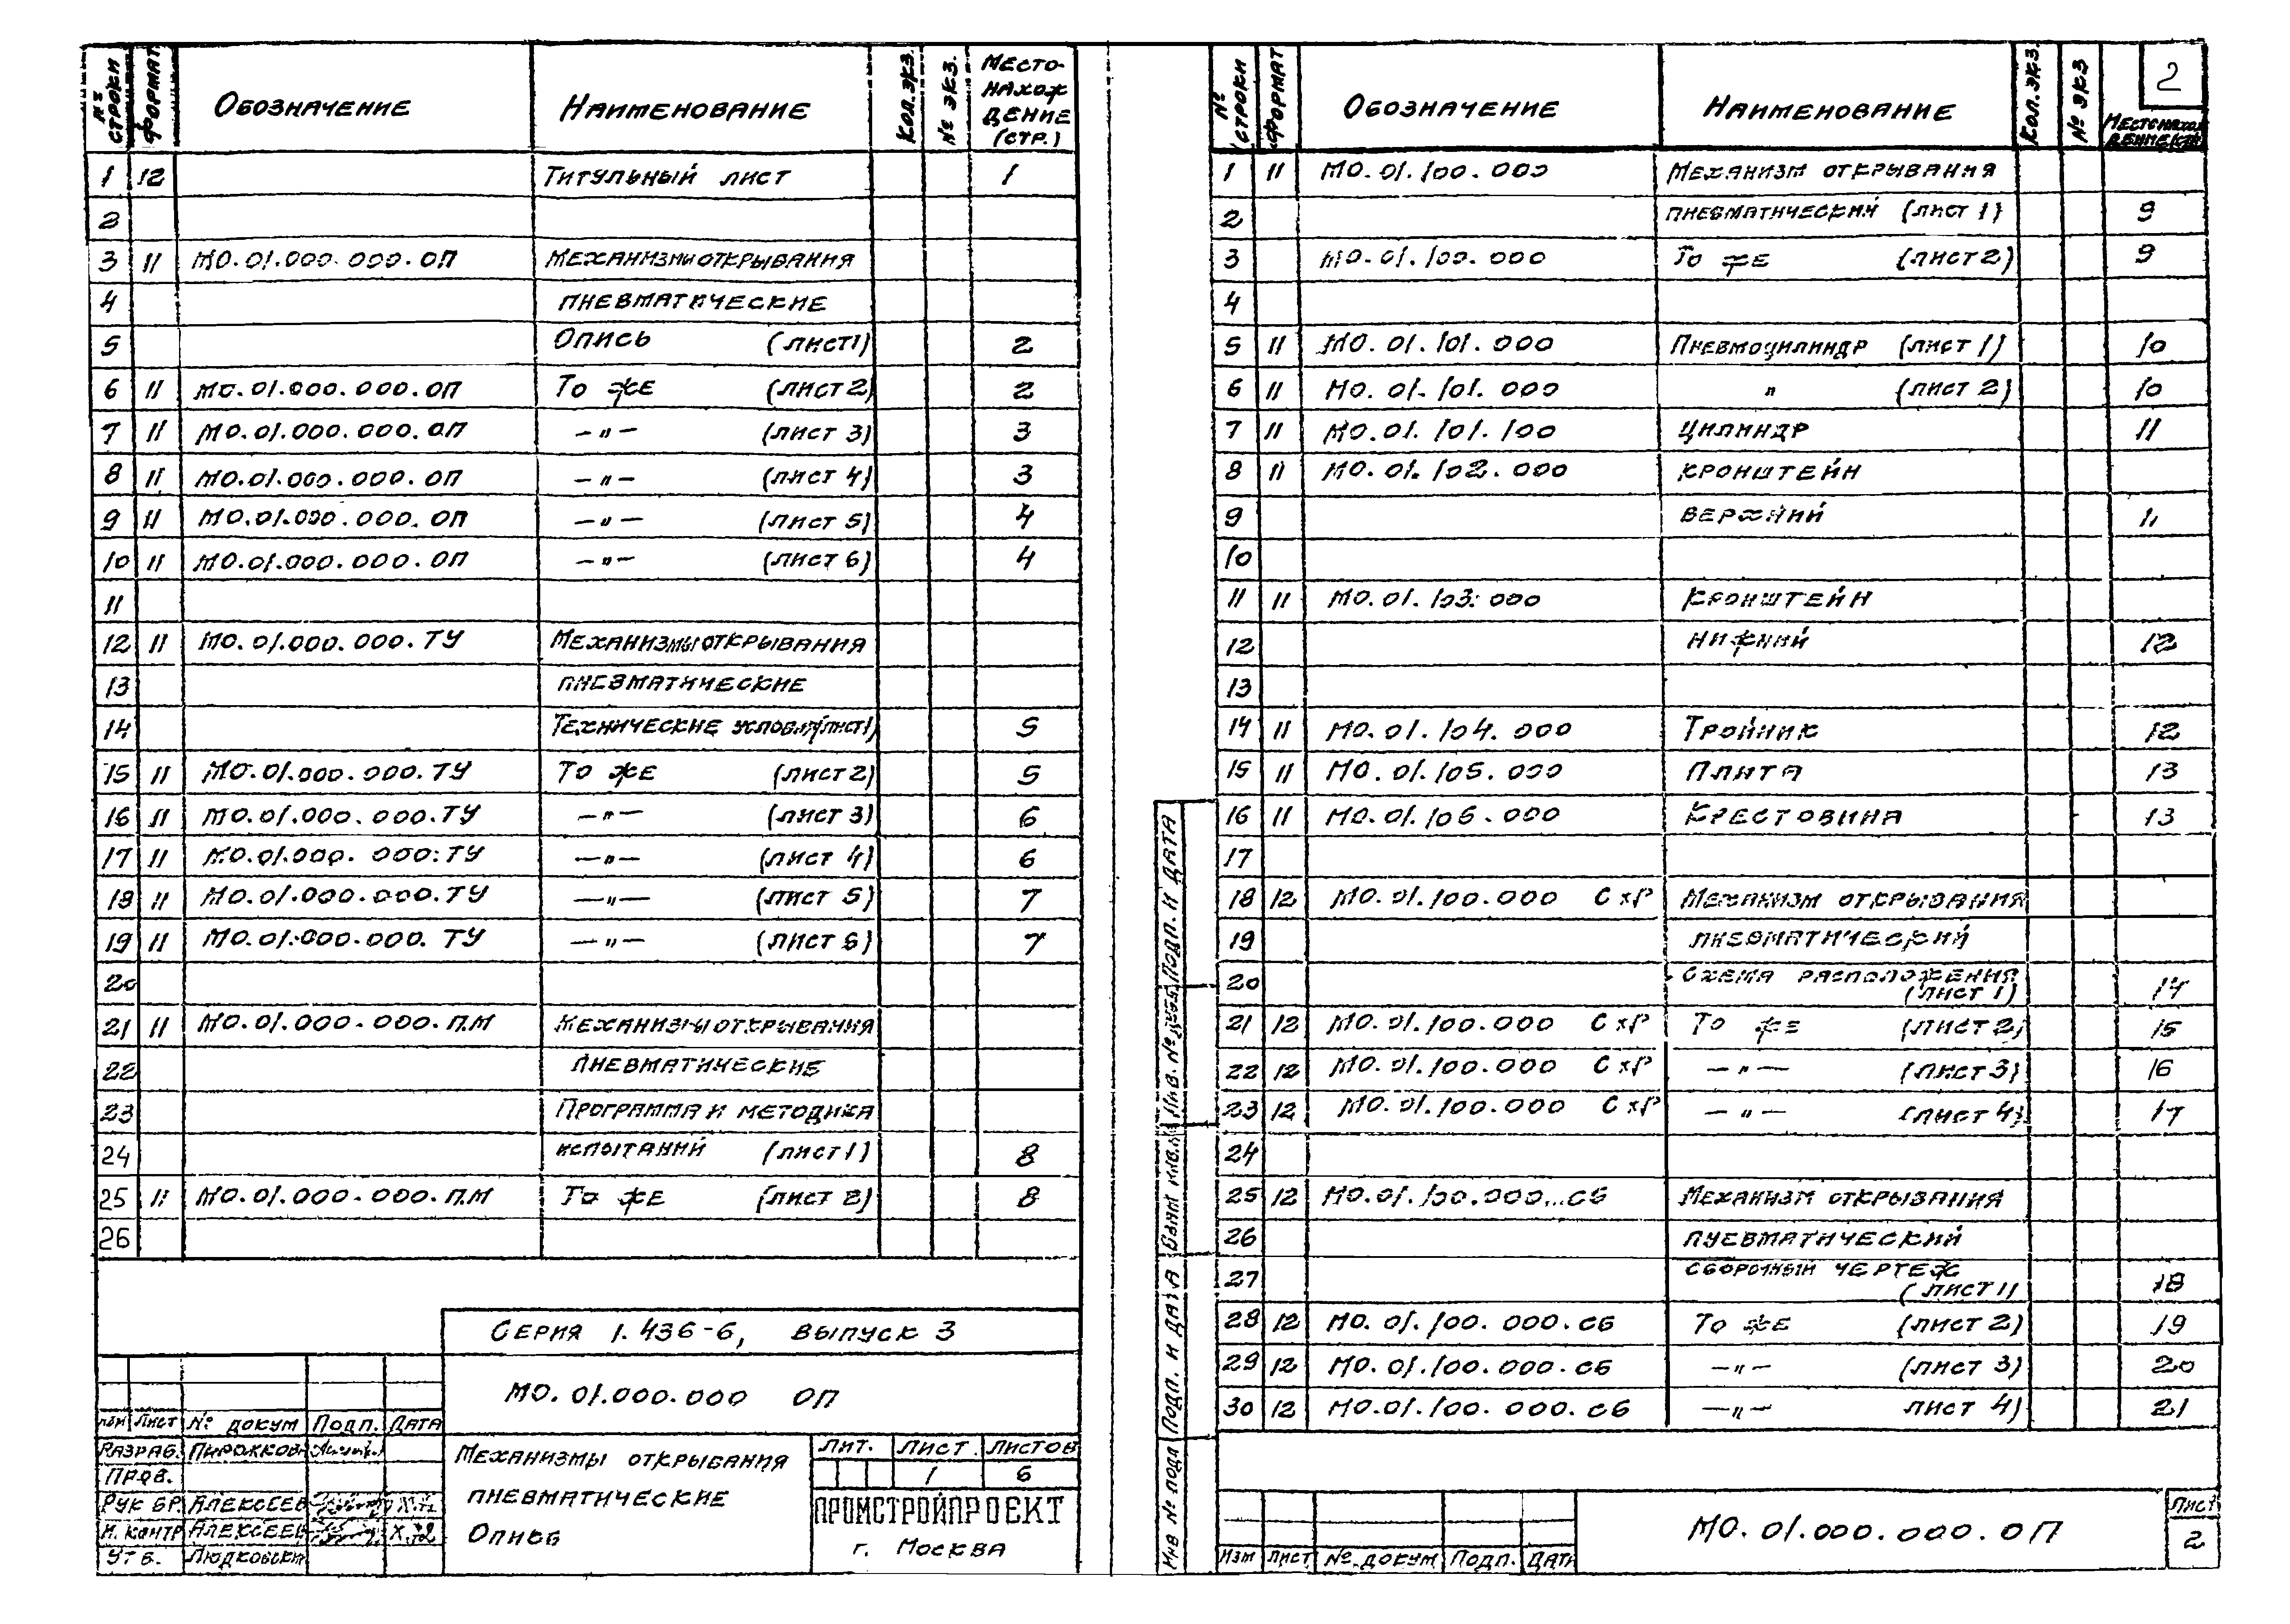 № строки Формат Обозначение Наименование Кол. экз. № экз. Местонахождение (стр.)
1 12 Титульный лист 1
2
3 11 МО.01.000.000.ОП Механизмы открывания
4 пневматические
5 Опись (лист 1) 2
6 11 МО.01.000.000.ОП То же (лист 2) 2
7 11 МО.01.000.000.ОП —"— (лист 3) 3
8 11 МО.01.000.000.ОП —"— (лист 4) 3
9 11 МО.01.000.000.ОП —"— (лист 5) 4
10 11 МО.01.000.000.ОП —"— (лист 6) 4
11
12 11 МО.01.000.000.ТУ Механизмы открывания
13 пневматические
14 Технические условия (лист 1) 5
15 11 МО.01.000.000.ТУ То же (лист 2) 5
16 11 МО.01.000.000.ТУ —"— (лист 3) 6
17 11 МО.01.000.000.ТУ —"— (лист 4) 6
18 11 МО.01.000.000.ТУ —"— (лист 5) 7
19 11 МО.01.000.000.ТУ —"— (лист 6) 7
20
21 11 МО.01.000.000.ПМ Механизмы открывания
22 пневматические
23 Программа и методика
24 испытаний (лист 1) 8
25 11 МО.01.000.000.ПМ То же (лист 2) 8
26
Серия 1.436-6, выпуск 3
МО.01.000.000 ОП
Изм Лист № докум Подп. Дата
Разраб.
Пров.
Рук бр. Алексеев
Н. контр Алексеев X.72
Утв. Людковский
Механизмы открывания
пневматические
Опись
Лит. Лист Листов
1 6
ПРОМСТРОЙПРОЕКТ
г. Москва
2
№ строки Формат Обозначение Наименование Кол. экз. № экз Местонахождение (стр)
1 11 МО.01.100.000 Механизм открывания
2 пневматический (лист 1) 9
3 МО.01.100.000 То же (лист 2) 9
4
5 11 МО.01.101.000 Пневмоцилиндр (лист 1) 10
6 11 МО.01.101.000 " (лист 2) 10
7 11 МО.01.101.100 Цилиндр 11
8 11 МО.01.102.000 Кронштейн
9 верхний 11
10
11 11 МО.01.103.000 Кронштейн
12 нижний 12
13
14 11 МО.01.104.000 Тройник 12
15 11 МО.01.105.000 Плита 13
16 11 МО.01.106.000 Крестовина 13
17
18 12 МО.01.100.000 СхР Механизм открывания
19 пневматический
20 схема расположения
(лист 1) 14
21 12 МО.01.100.000 СхР То же (лист 2) 15
22 12 МО.01.100.000 СхР —"— (лист 3) 16
23 12 МО.01.100.000 СхР —"— (лист 4) 17
24
25 12 МО.01.100.000...СБ Механизм открывания
26 пневматический
27 сборочный чертеж
(лист 1) 18
28 12 МО.01.100.000.СБ То же (лист 2) 19
29 12 МО.01.100.000.СБ —"— (лист 3) 20
30 12 МО.01.100.000.СБ —"— лист 4) 21
Инв № подл Подп. и дата Взам инв.№ Инв. № дубл. Подп. и дата
Изм Лист № докум Подп. Дата
МО.01.000.000.ОП
Лист
2